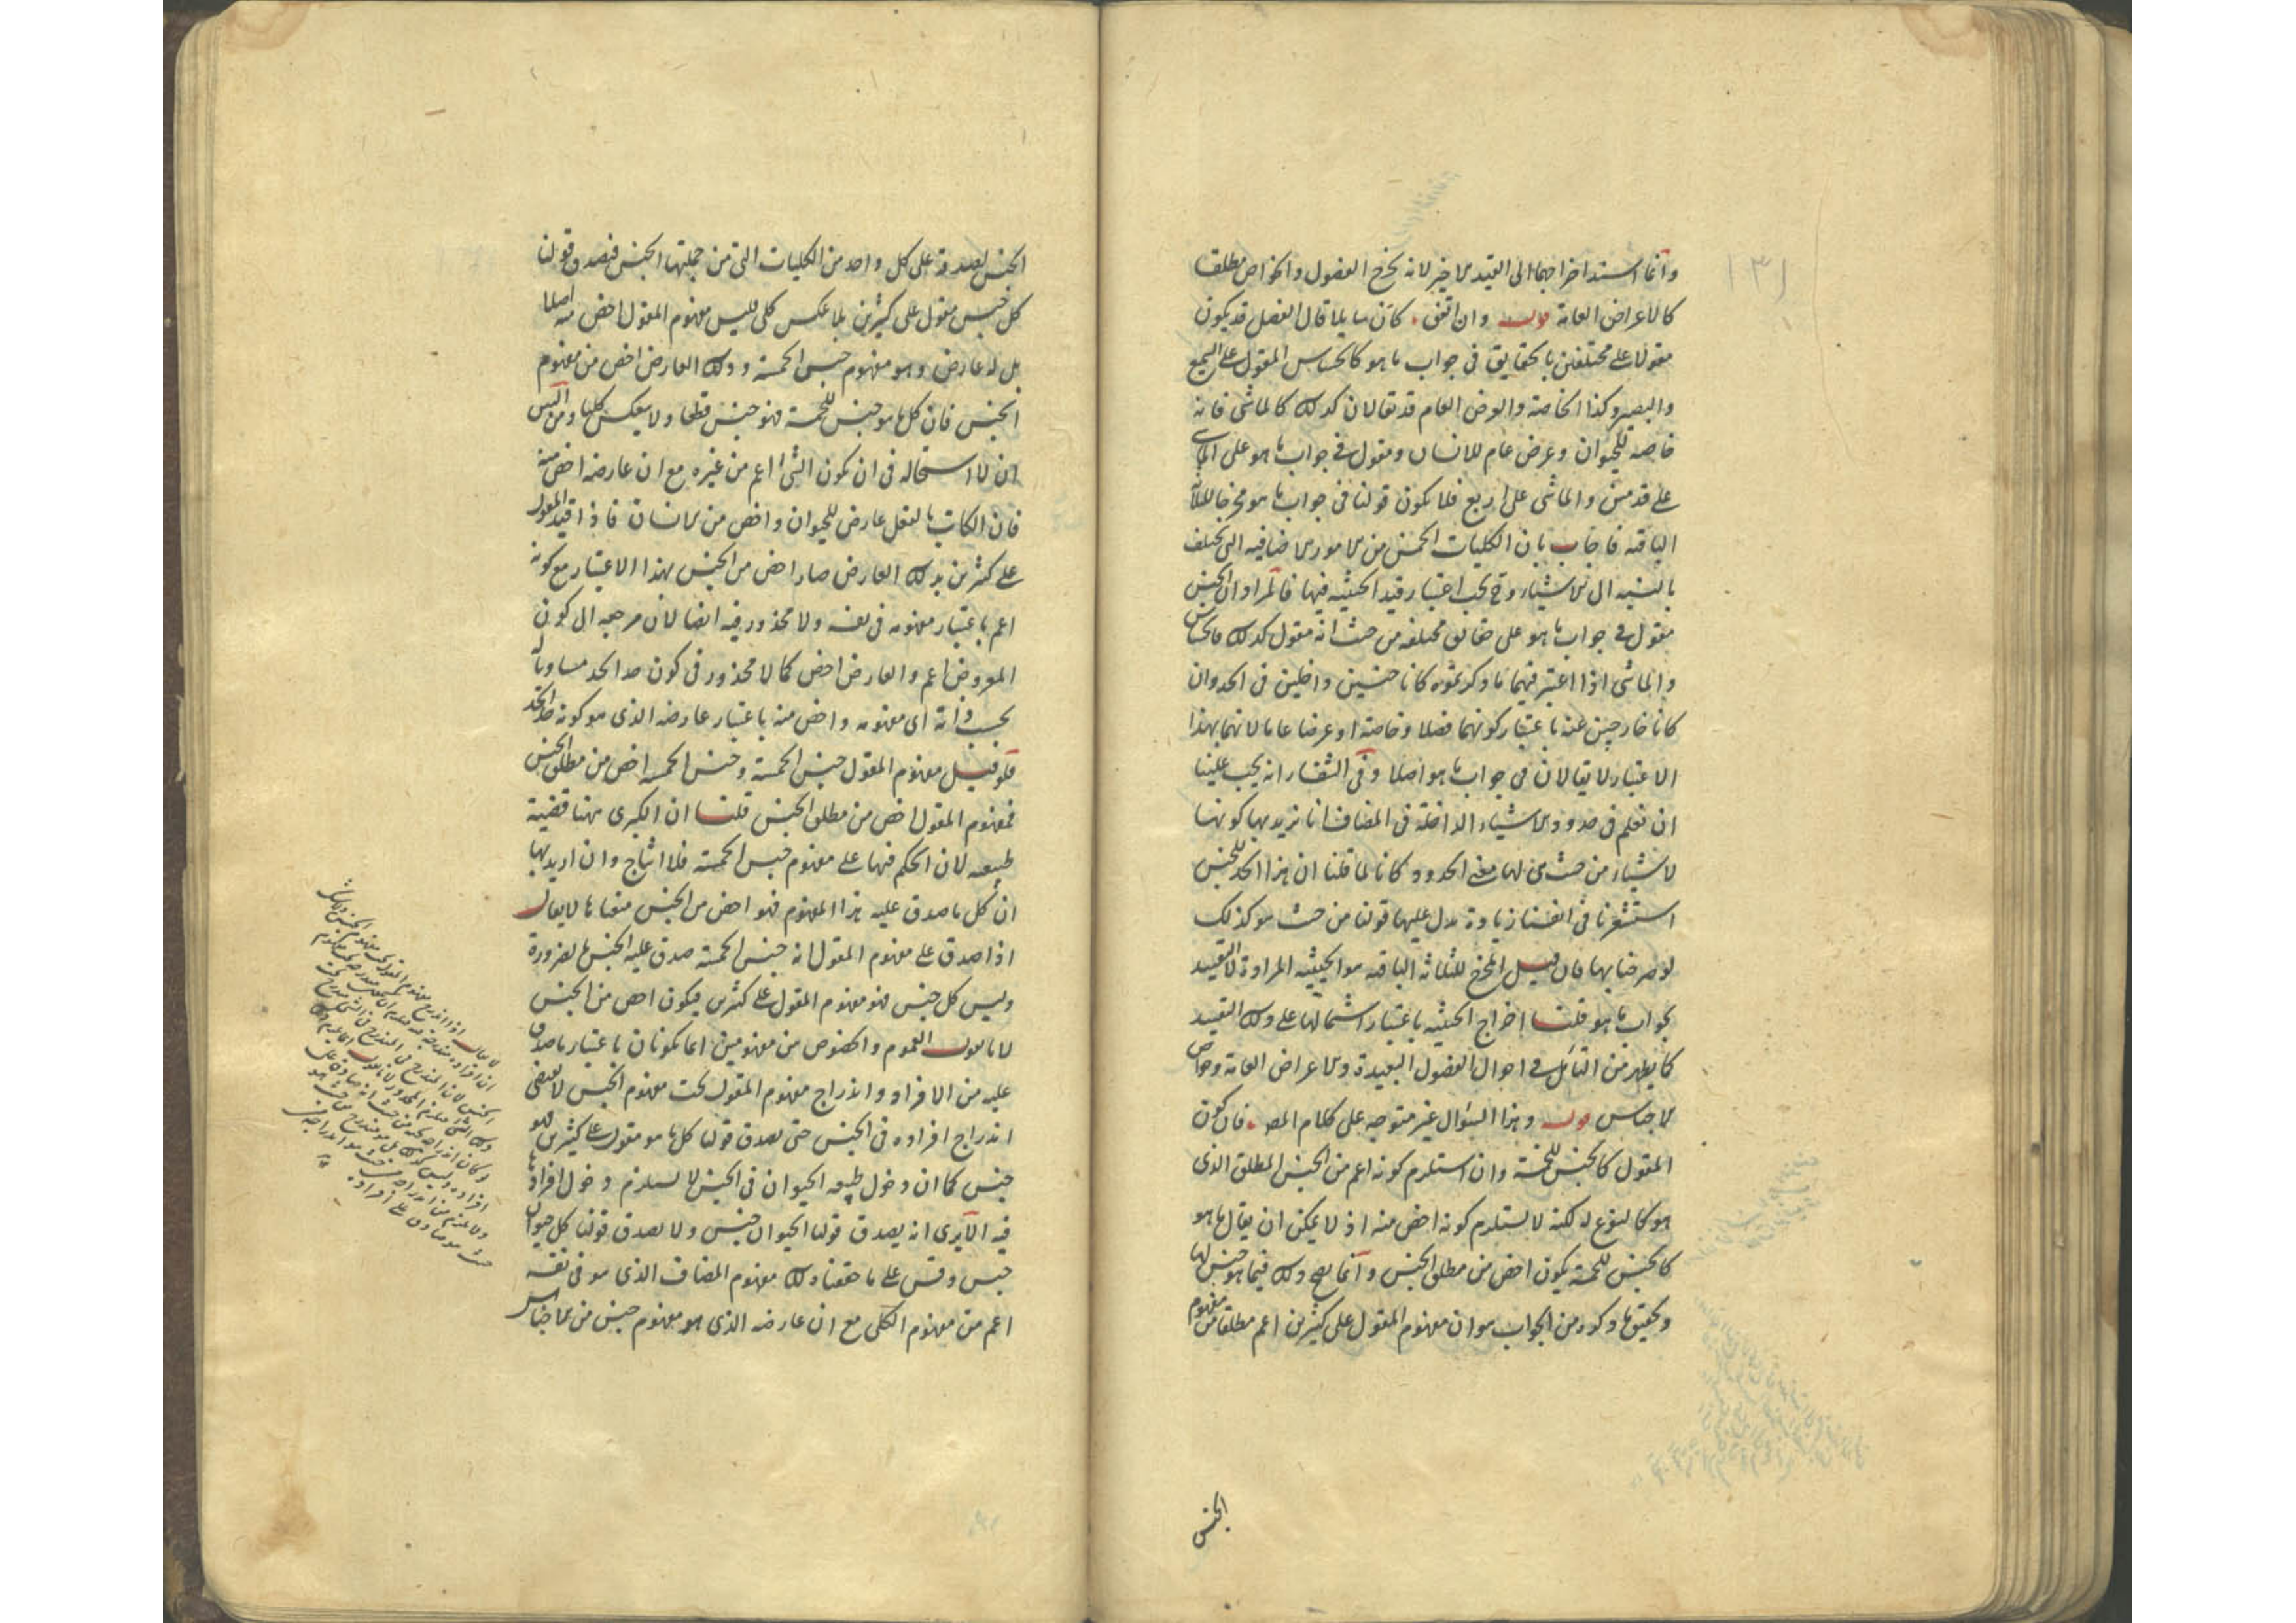 وانما اسند اخراجهما الى القيد الاخير لانه يخرج الفصول والخواص مطلقا
كالاعراض العامة قوله وان اتفق كان سايلا قال الفصل قد يكون
مقولا على مختلفين بالحقايق فى جواب ما هو كالحساس المقول على السميع
والبصير وكذا الخاصة والعرض العام قد يقالان كذلك كالماشى فانه
خاصة للحيوان وعرض عام للانسان ومقول فى جواب ما هو على الماشى
على قدمين والماشى على اربع فلا يكون قولنا فى جواب ما هو مخرجا للثلاثة
الباقية فاجاب بان الكليات الخمس من الامور الاضافية التى تختلف
بالنسبة الى الاشياء وح يجب اعتبار قيد الحيثية فيها فالمراد ان الجنس
مقول فى جواب ما هو على حقائق مختلفة من حيث انه مقول كذلك فالحساس
والماشى اذا اعتبر فيهما ما ذكرتموه كانا جنسين داخلين فى الحد وان
كانا خارجين عنه باعتبار كونهما فصلا وخاصة او عرضا عاما لانهما بهذا
الاعتبار لا يقالان فى جواب ما هو اصلا وفى الشفاء انه يجب علينا
ان نعلم فى حدود الاشياء الداخلة فى المضاف انا نريد بها كونها
لاشياء من حيث هى لها معنى الحدود كانا لما قلنا ان هذا الحد للجنس
استشعرنا فى انفسنا زيادة يدل عليها قولنا من حيث هو كذلك
لو صرحنا بها فان قيل المخرج للثلاثة الباقية هو الحيثية المرادة لا التقييد
بجواب ما هو قلنا اخراج الحيثية باعتبار اشتمالها على ذلك التقييد
كما يظهر من التامل فى احوال الفصول البعيدة والاعراض العامة وخواص
الاجناس قوله وهذا السؤال غير متوجه على كلام المص فان كون
المقول كالجنس للخمسة وان استلزم كونه اعم من الجنس المطلق الذى
هو كالنوع له لكنه لا يستلزم كونه اخص منه اذ لا يمكن ان يقال ما هو
كالجنس للخمسة يكون اخص من مطلق الجنس وانما يصح ذلك فيما هو جنس لها
وتحقيق ما ذكره من الجواب هو ان مفهوم المقول على كثيرين اعم مطلقا من مفهوم
الجنس
الجنس لصدقه على كل واحد من الكليات التى من جملتها الجنس فيصدق قولنا
كل جنس مقول على كثيرين بلا عكس كلى فليس مفهوم المقول اخص منه اصلا
بل له عارض وهو مفهوم جنس الخمسة وذلك العارض اخص من مفهوم
الجنس فان كل ما هو جنس للخمسة فهو جنس قطعا ولا ينعكس كليا ومن البين
ان لا استحالة فى ان يكون الشئ اعم من غيره مع ان عارضه اخص منه
فان الكاتب بالفعل عارض للحيوان واخص من الانسان فاذا قيد المقول
على كثيرين بذلك العارض صار اخص من الجنس بهذا الاعتبار مع كونه
اعم باعتبار مفهومه فى نفسه ولا محذور فيه ايضا لان مرجعه الى كون
المعروض اعم والعارض اخص كما لا محذور فى كون حد الحد مساويا له
بحسب ذاته اى مفهومه واخص منه باعتبار عارضه الذى هو كونه حد الحد
فلو قيل مفهوم المقول جنس الخمسة وجنس الخمسة اخص من مطلق الجنس
فمفهوم المقول اخص من مطلق الجنس قلنا ان الكبرى ههنا قضية
طبيعية لان الحكم فيها على مفهوم جنس الخمسة فلا انتاج وان اريد بها
ان كل ما صدق عليه هذا المفهوم فهو اخص من الجنس منعناها لا يقال
اذا صدق على مفهوم المقول انه جنس الخمسة صدق عليه الجنس بالضرورة
وليس كل جنس فهو مفهوم المقول على كثيرين فيكون اخص من الجنس
لانا نقول العموم والخصوص من مفهومين انما يكونان باعتبار ما صدق
عليه من الافراد واندراج مفهوم المقول تحت مفهوم الجنس لا يقتضى
اندراج افراده فى الجنس حتى يصدق قولنا كل ما هو مقول على كثيرين فهو
جنس كما ان دخول طبيعة الحيوان فى الجنس لا يستلزم دخول افراده
فيه الا يرى انه يصدق قولنا الحيوان جنس ولا يصدق قولنا كل حيوان
جنس وقس على ما حققنا ذلك مفهوم المضاف الذى هو فى نفسه
اعم من مفهوم الكلى مع ان عارضه الذى هو مفهوم جنس من الاجناس